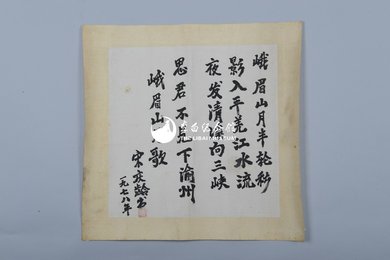 峨眉山月半轮秋
影入平羌江水流
夜发清 向三峡
思君不 下渝州
峨眉山 歌
宋庆龄书
一九七八年